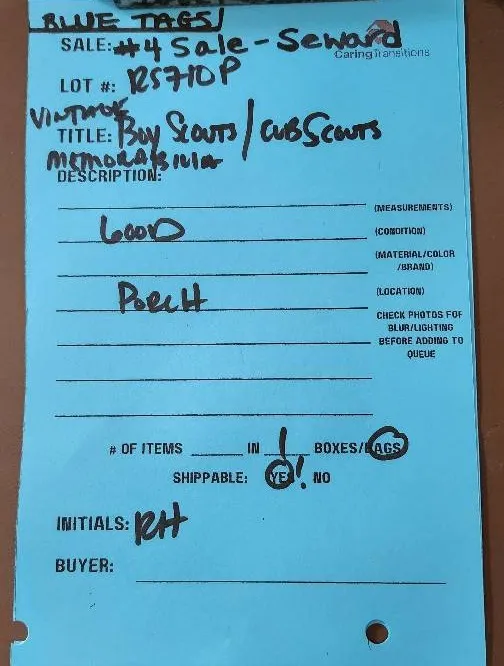 BLUE TAGS
SALE: #4 Sale - Seward
Caring Transitions
LOT #: RS710P
VINTAGE
TITLE: BOY SCOUTS / CUB SCOUTS
MEMORABILIA
DESCRIPTION:
(MEASUREMENTS)
GOOD (CONDITION)
(MATERIAL/COLOR
/BRAND)
PORCH (LOCATION)
CHECK PHOTOS FOR
BLUR/LIGHTING
BEFORE ADDING TO
QUEUE
# OF ITEMS IN 1 BOXES/BAGS
SHIPPABLE: YES! NO
INITIALS: RH
BUYER: